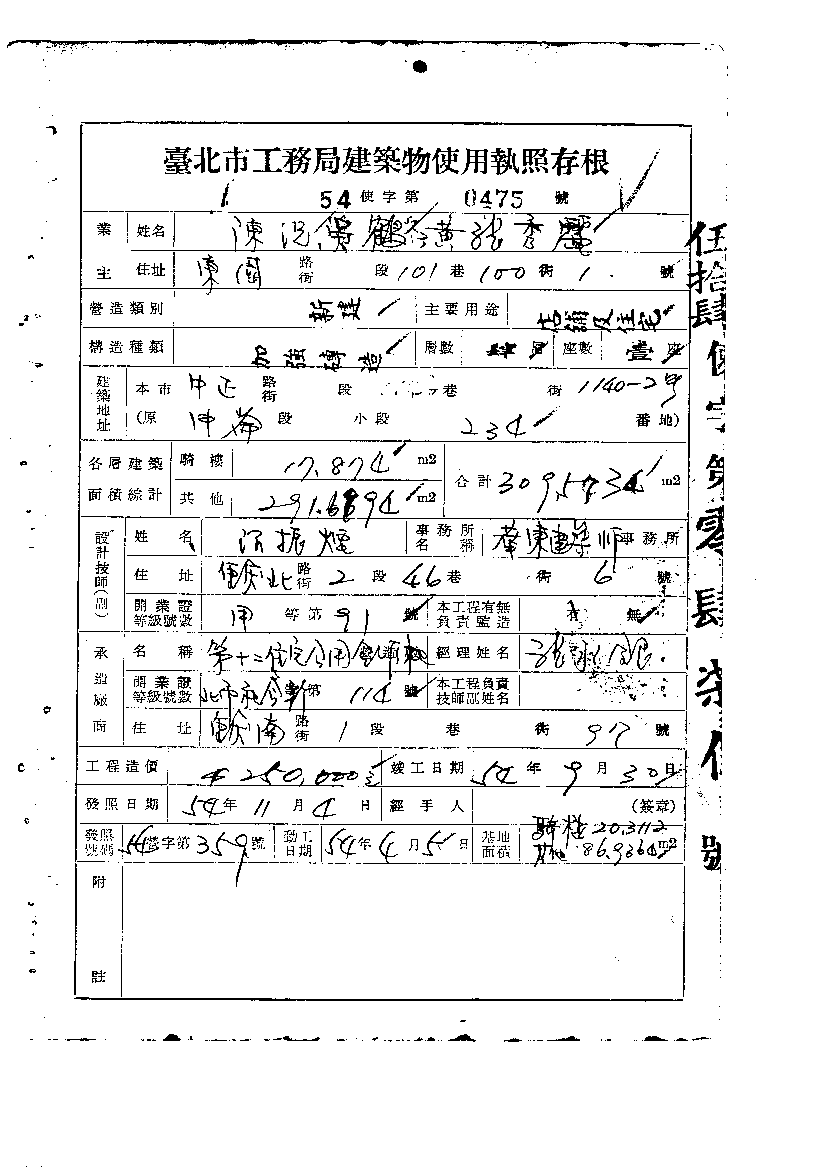 臺北市工務局建築物使用執照存根
54 使字第 0475 號
業主 姓名 陳 鶴 黃 秀麗
住址 東 路街 段 101 巷 100 衖 1 號
營造類別 新建 主要用途 店舖及住宅
構造種類 加強磚造 層數 層 座數 壹 座
建築地址 本市 中正 路街 段 巷 衖 1140-2號
(原 中崙 段 小段 234 番地)
各層建築面積綜計 騎樓 17.874 m2 合計 309.5734 m2
其他 291.6994 m2
設計技師(副) 姓名 沈振煙 事務所名稱 華東建築師事務所
住址 北 路街 2 段 46 巷 衖 6 號
開業證等級號數 甲 等第 91 號 本工程有無負責監造 有 無
承造廠商 名稱 第十二住宅公用 經理姓名 張
開業證等級號數 北市 第 114 號 本工程負責技師部姓名
住址 南 路街 1 段 巷 衖 97 號
工程造價 250,000 竣工日期 54 年 9 月 30 日
發照日期 54 年 11 月 4 日 經手人 (簽章)
發照號碼 54 營字第 359 號 動工日期 54 年 4 月 5 日 基地面積 騎樓 20.3112 其他 86.9364 m2
附註
伍拾肆使字第零肆柒伍號